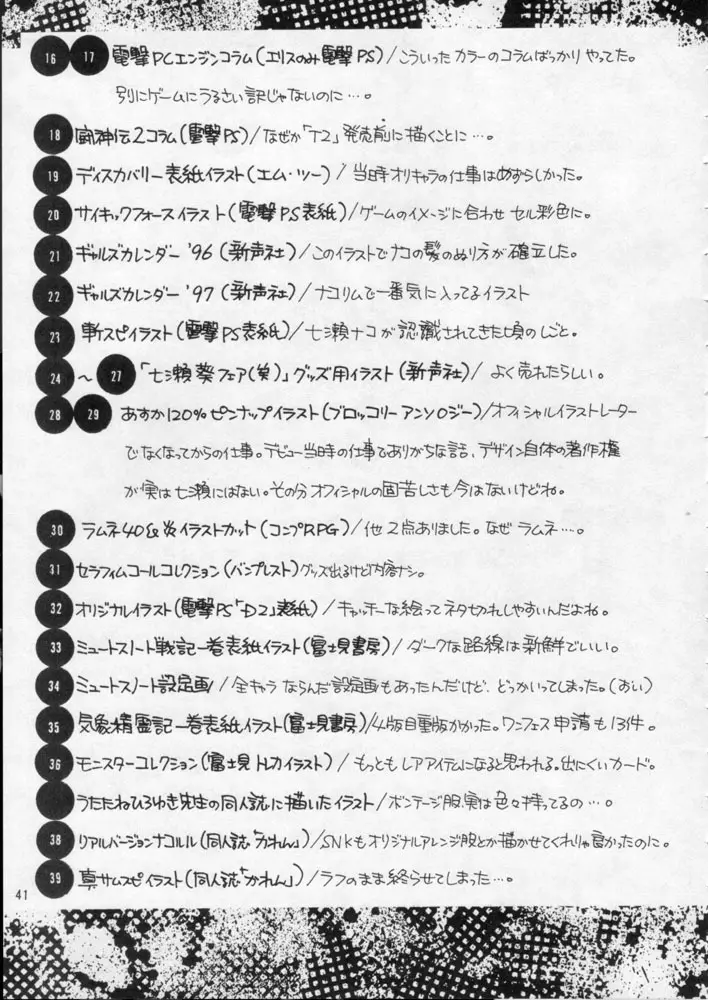 16 17 電撃PCエンジンコラム(エリスのみ電撃PS)/こういったカラーのコラムばっかりやってた。
別にゲームにうるさい訳じゃないのに…。
18 闘神伝2コラム(電撃PS)/なぜか「T2」発売前に描くことに…。
19 ディスカバリー表紙イラスト(エム・ツー)/当時オリキャラの仕事はめずらしかった。
20 サイキックフォースイラスト(電撃PS表紙)/ゲームのイメージに合わせセル彩色に。
21 ギャルズカレンダー'96(新声社)/このイラストでナコの髪のぬり方が確立した。
22 ギャルズカレンダー'97(新声社)/ナコリムで一番気に入ってるイラスト
23 斬スピイラスト(電撃PS表紙)/七瀬ナコが認識されてきた頃のしごと。
24 〜 27 「七瀬葵フェア(笑)」グッズ用イラスト(新声社)/よく売れたらしい。
28 29 あすか120%ピンナップイラスト(ブロッコリーアンソロジー)/オフィシャルイラストレーター
でなくなってからの仕事。デビュー当時の仕事でありがちな話、デザイン自体の著作権
が実は七瀬にはない。その分オフィシャルの固苦しさも今はないけどね。
30 ラムネ40&炎イラストカット(コンプRPG)/他2点ありました。なぜラムネ…。
31 セラフィムコールコレクション(バンプレスト)グッズ出るけど内容ナシ。
32 オリジナルイラスト(電撃PS「D2」表紙)/キャッチーな絵ってネタ切れしやすいんだよね。
33 ミュートスノート戦記一巻表紙イラスト(富士見書房)/ダークな路線は新鮮でいい。
34 ミュートスノート設定画/全キャラならんだ設定画もあったんだけど、どっかいってしまった。(おい)
35 気象精霊記一巻表紙イラスト(富士見書房)/4版目重版かかった。ワンフェス申請も13件。
36 モンスターコレクション(富士見トレカイラスト)/もっともレアアイテムになると思われる。出にくいカード。
うたたねひろゆき先生の同人誌に描いたイラスト/ボンテージ服、実は色々持ってるの…。
38 リアルバージョンナコルル(同人誌「かれん」)/SNKもオリジナルアレンジ服とか描かせてくれりゃ良かったのに。
39 真サムスピイラスト(同人誌「かれん」)/ラフのまま終らせてしまった…。
41